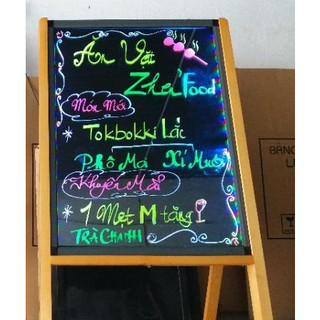 Ăn Vặt
Zhá Food
Món Mới
Tokbokki Lắc
Phô Mai Xí Muội
Khuyến Mãi
1 Mẹt M tặng
TRÀ CHANH
BĂNG